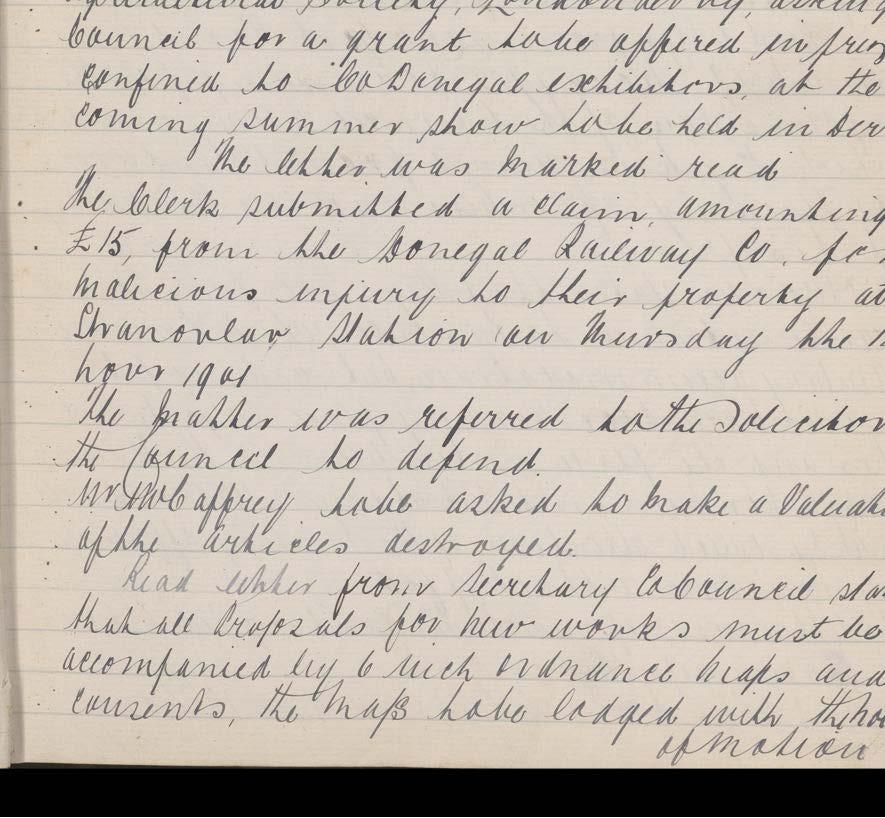 Society, Londonderry, asking
Council for a grant to be offered in
confined to Co Donegal exhibitors, at the
coming summer show to be held in Der
The letter was marked read
The Clerk submitted a claim, amounting
£15, from the Donegal Railway Co. for
malicious injury to their property at
Stranorlar Station on Thursday the
1901
The matter was referred to the Solicitor
the Council to defend.
Mr McCaffrey to be asked to make a Valuati
of the articles destroyed.
Read letter from Secretary Co Council sta
that all Proposals for new works must be
accompanied by 6 inch Ordnance Maps and
Consents, the Maps to be lodged with the
of Motion